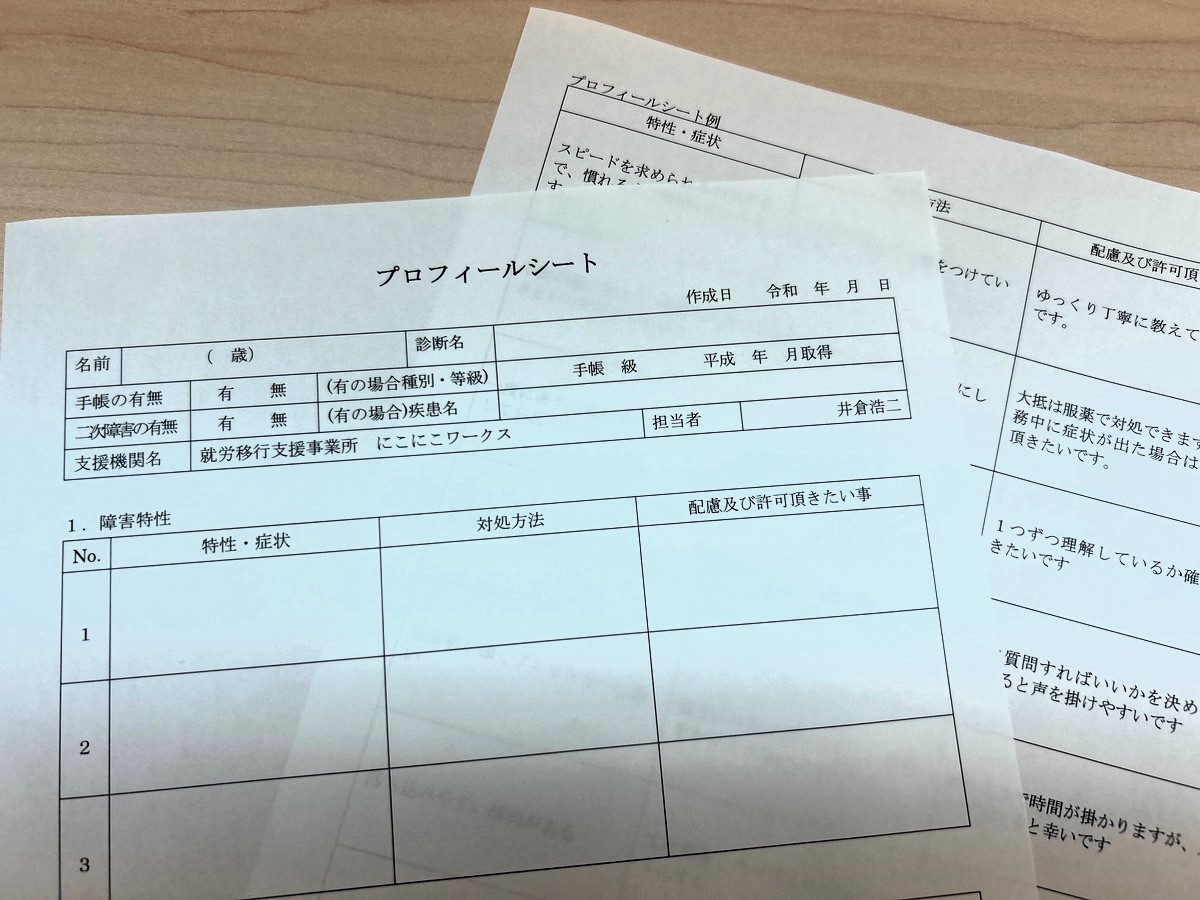 プロフィールシート例
特性・症状
スピードを求められ
で、慣れる
す。
方法
配慮及び許可頂
をつけてい
ゆっくり丁寧に教えて
です。
にし
大抵は服薬で対処できます
務中に症状が出た場合は
頂きたいです。
1つずつ理解しているか確
きたいです
質問すればいいかを決め
ると声を掛けやすいです
で時間が掛かりますが、
と幸いです
プロフィールシート
作成日 令和 年 月 日
名前 ( 歳) 診断名
手帳の有無 有 無 (有の場合種別・等級) 手帳 級 平成 年 月取得
二次障害の有無 有 無 (有の場合)疾患名
支援機関名 就労移行支援事業所 にこにこワークス 担当者 井倉浩二
1．障害特性
No. 特性・症状 対処方法 配慮及び許可頂きたい事
1
2
3